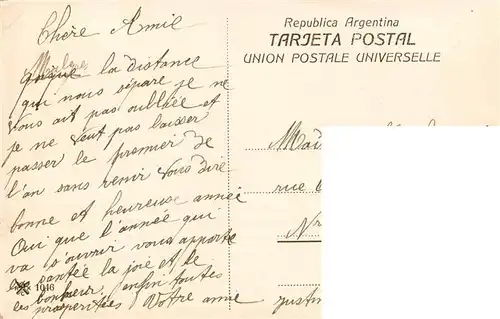 Republica Argentina
TARJETA POSTAL
UNION POSTALE UNIVERSELLE
Chère Amie
la distance
qui nous sépare je ne
vous ait pas oubliée et
je ne veut pas laisser
passer le premier de
l'an sans venir vous dire
bonne et heureuse année
Oui que l'année qui
va s'ouvrir vous apporte
santée la joie et le
bonheur enfin toutes
les prosperitées Votre amie
1046
Mad
rue
N